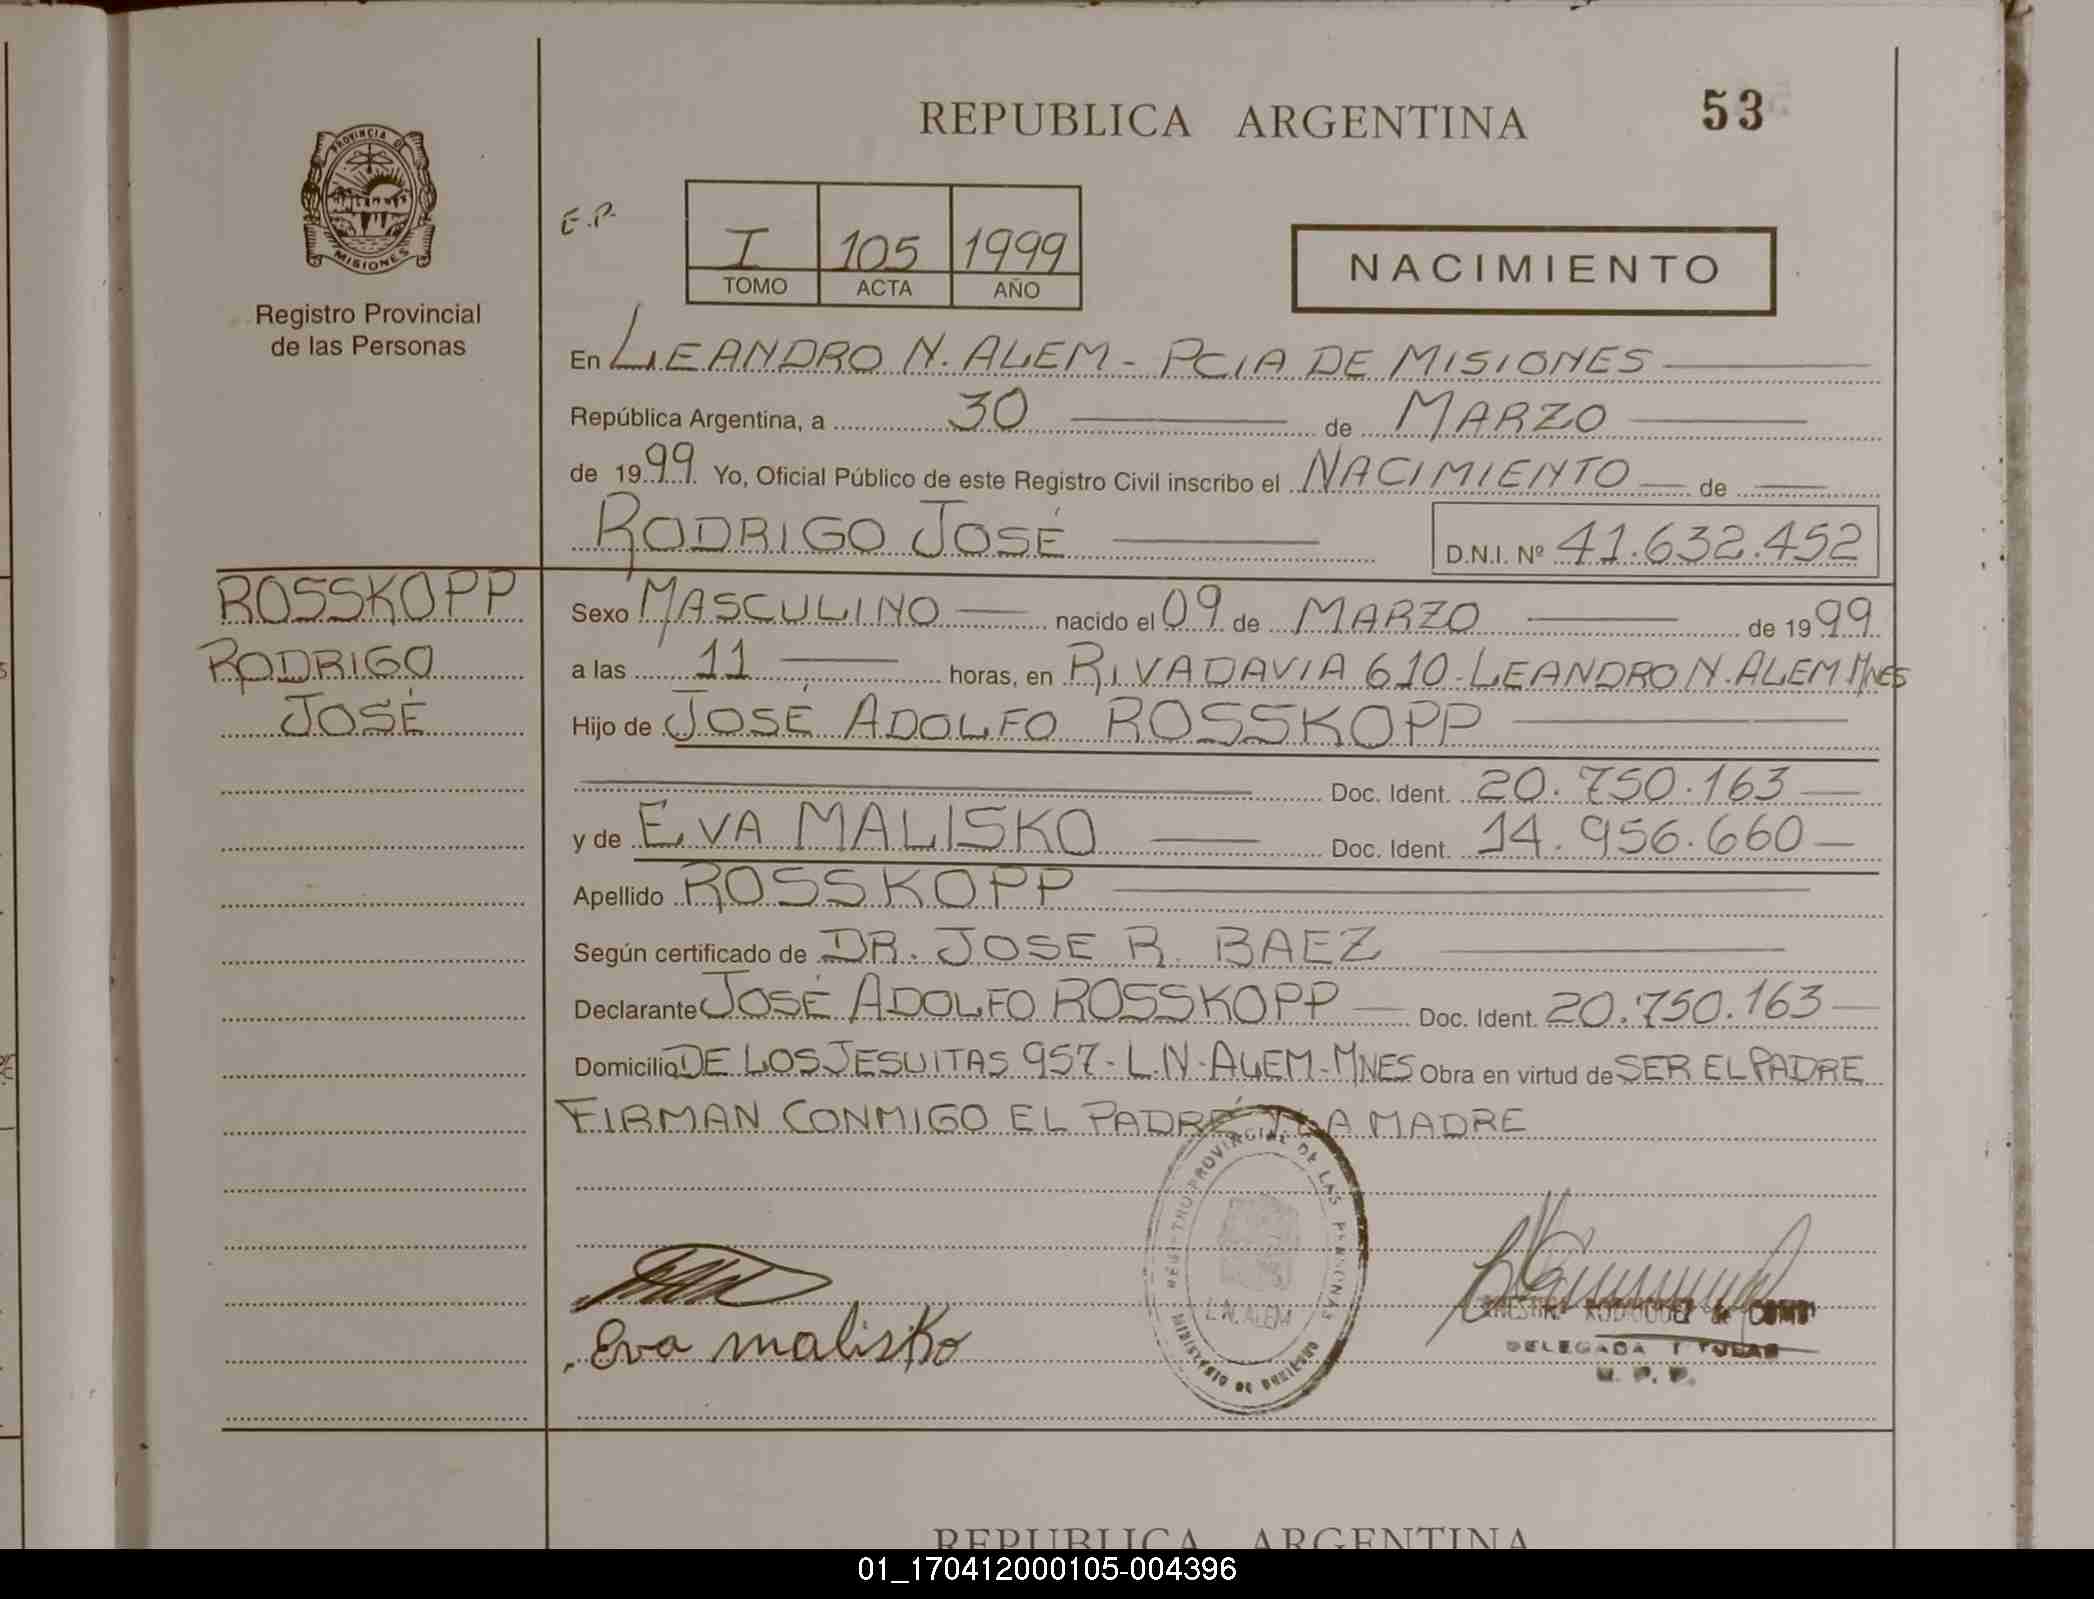 53
REPUBLICA ARGENTINA
PROVINCIA DE
MISIONES
Registro Provincial
de las Personas
E.P.
I 105 1999
TOMO ACTA AÑO
NACIMIENTO
En LEANDRO N. ALEM - PCIA DE MISIONES
República Argentina, a 30 de MARZO
de 1999 Yo, Oficial Público de este Registro Civil inscribo el NACIMIENTO de
RODRIGO JOSÉ D.N.I. Nº 41.632.452
ROSSKOPP
RODRIGO
JOSÉ
Sexo MASCULINO nacido el 09 de MARZO de 1999
a las 11 horas, en RIVADAVIA 610-LEANDRO N. ALEM Mnes
Hijo de JOSÉ ADOLFO ROSSKOPP
Doc. Ident. 20.750.163
y de EVA MALISKO Doc. Ident. 14.956.660
Apellido ROSSKOPP
Según certificado de DR. JOSE R. BAEZ
Declarante JOSÉ ADOLFO ROSSKOPP Doc. Ident. 20.750.163
Domicilio DE LOS JESUITAS 957-L.N-ALEM-MNES Obra en virtud de SER EL PADRE
FIRMAN CONMIGO EL PADRE Y LA MADRE
REGISTRO PROVINCIAL DE LAS PERSONAS
L.N. ALEM
MINISTERIO DE GOBIERNO
Eva malisko
DELEGADA TITULAR
REPUBLICA ARGENTINA
01_170412000105-004396